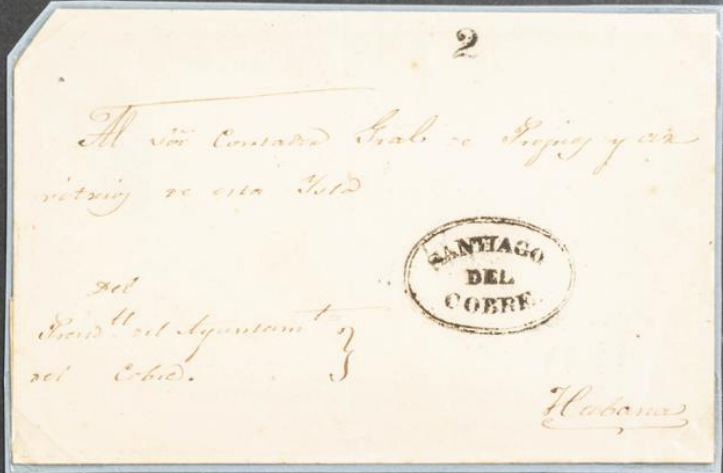 2
Al Sör Contador Gral. de Propios y ar
vitrios de esta Ysla
SANTIAGO
DEL
COBRE.
Del
Presid.te del Ayuntam.to
del Cobre.
Habana